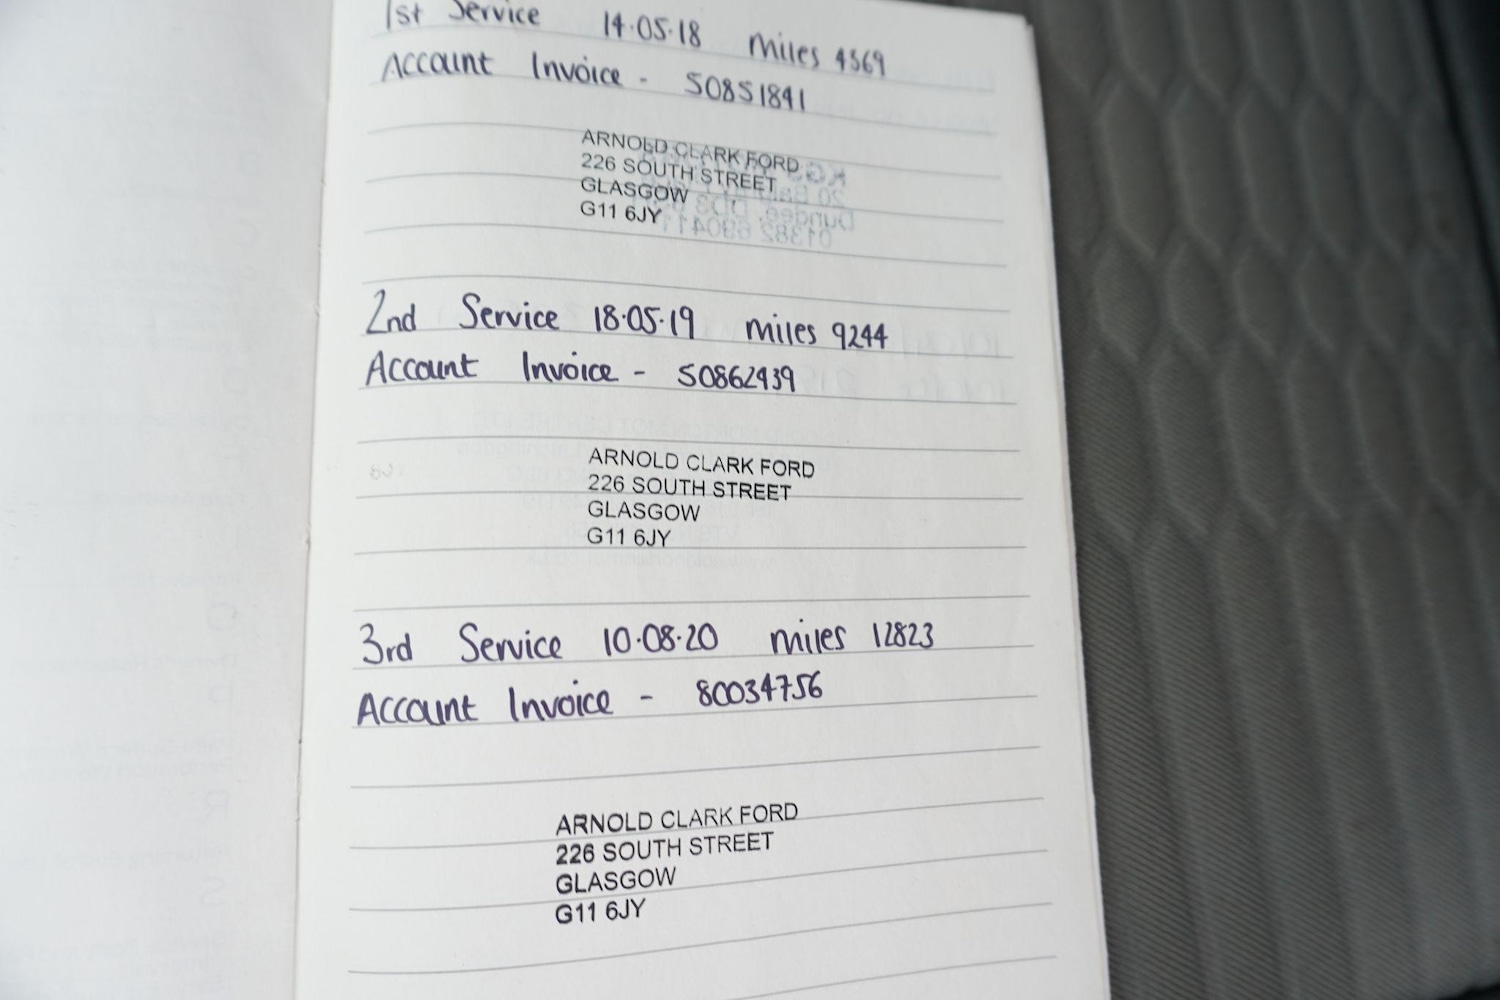 1st Service 14.05.18 miles 4569
Account Invoice - 50851841
ARNOLD CLARK FORD
226 SOUTH STREET
GLASGOW
G11 6JY
2nd Service 18.05.19 miles 9244
Account Invoice - 50862939
ARNOLD CLARK FORD
226 SOUTH STREET
GLASGOW
G11 6JY
3rd Service 10.08.20 miles 12823
Account Invoice - 80034756
ARNOLD CLARK FORD
226 SOUTH STREET
GLASGOW
G11 6JY